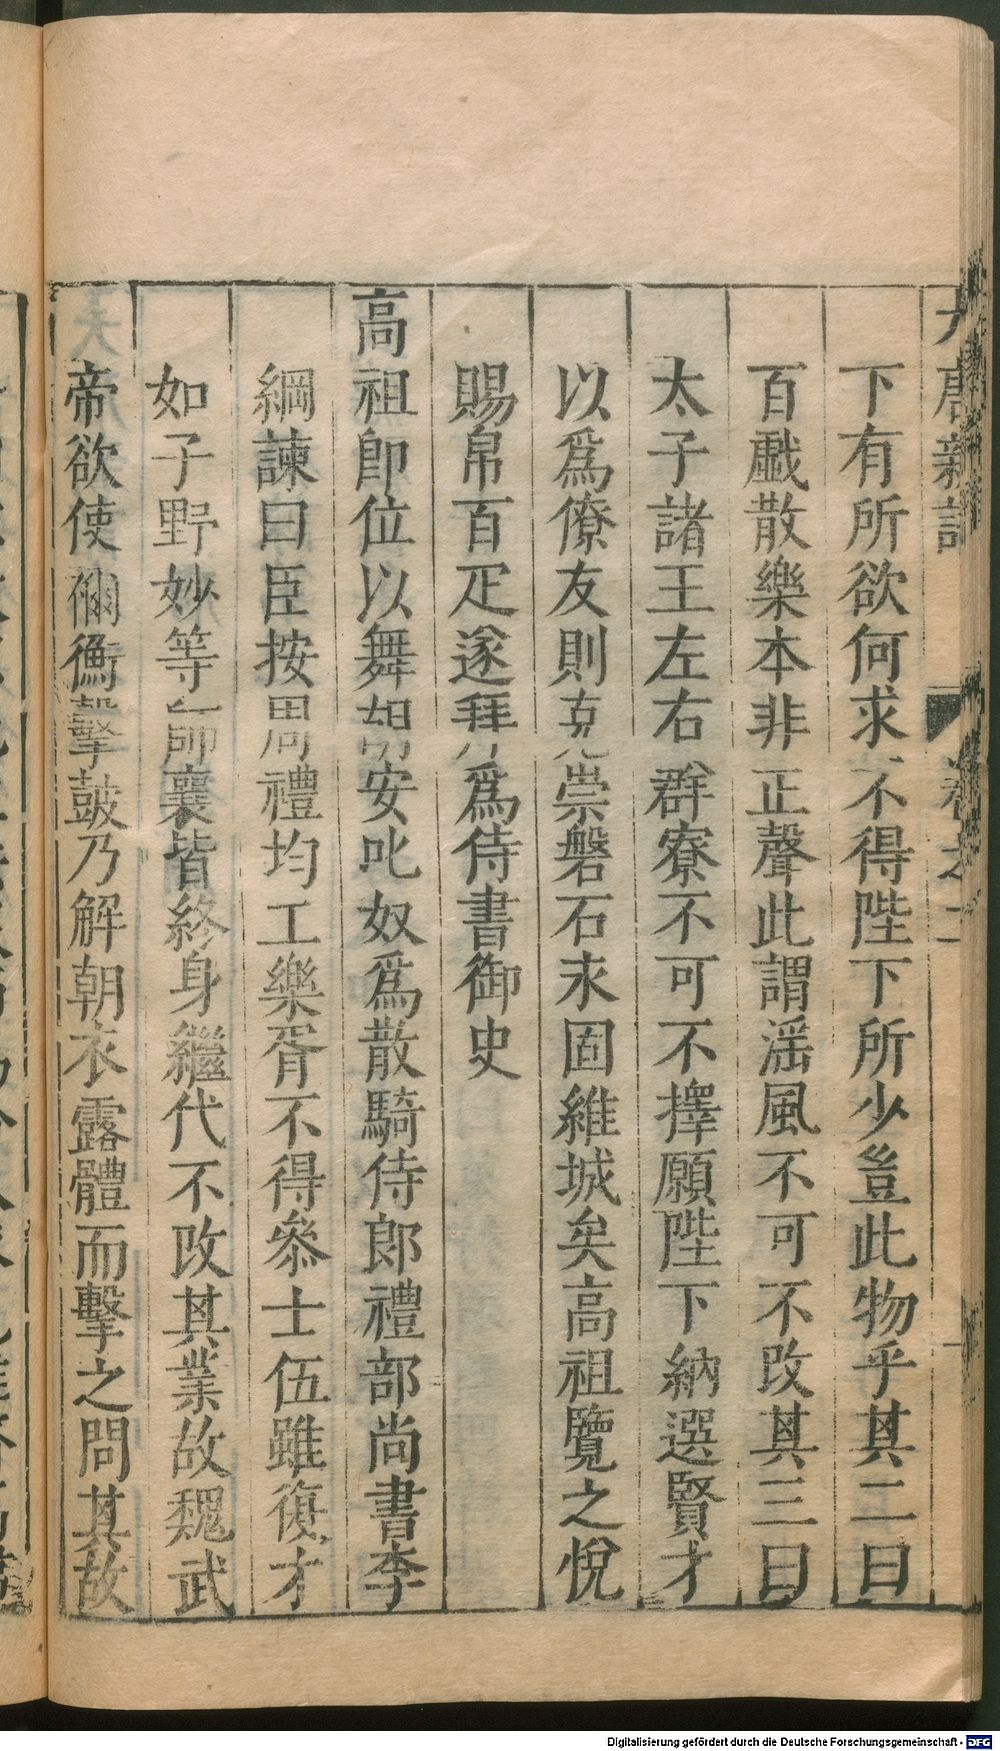 大唐新語 卷之二
下有所欲何求不得陛下所少豈此物乎其二曰
百戱散樂本非正聲此謂滛風不可不改其三曰
太子諸王左右群寮不可不擇願陛下納選賢才
以爲僚友則克崇磐石永固維城矣高祖覽之悅
賜帛百疋遂拜爲侍書御史
高祖卽位以舞胡安叱奴爲散騎侍郎禮部尚書李
綱諫曰臣按周禮均工樂胥不得叅士伍雖復才
如子野妙等師襄皆終身繼代不改其業故魏武
帝欲使禰衡擊鼓乃解朝衣露體而擊之問其故
Digitalisierung gefördert durch die Deutsche Forschungsgemeinschaft - DFG